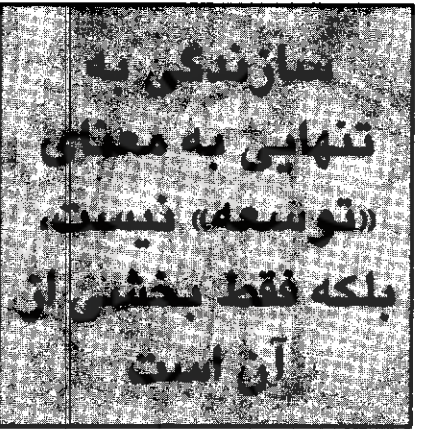 سازندگی به
تنهایی به معنای
«توسعه» نیست،
بلکه فقط بخشی از
آن است